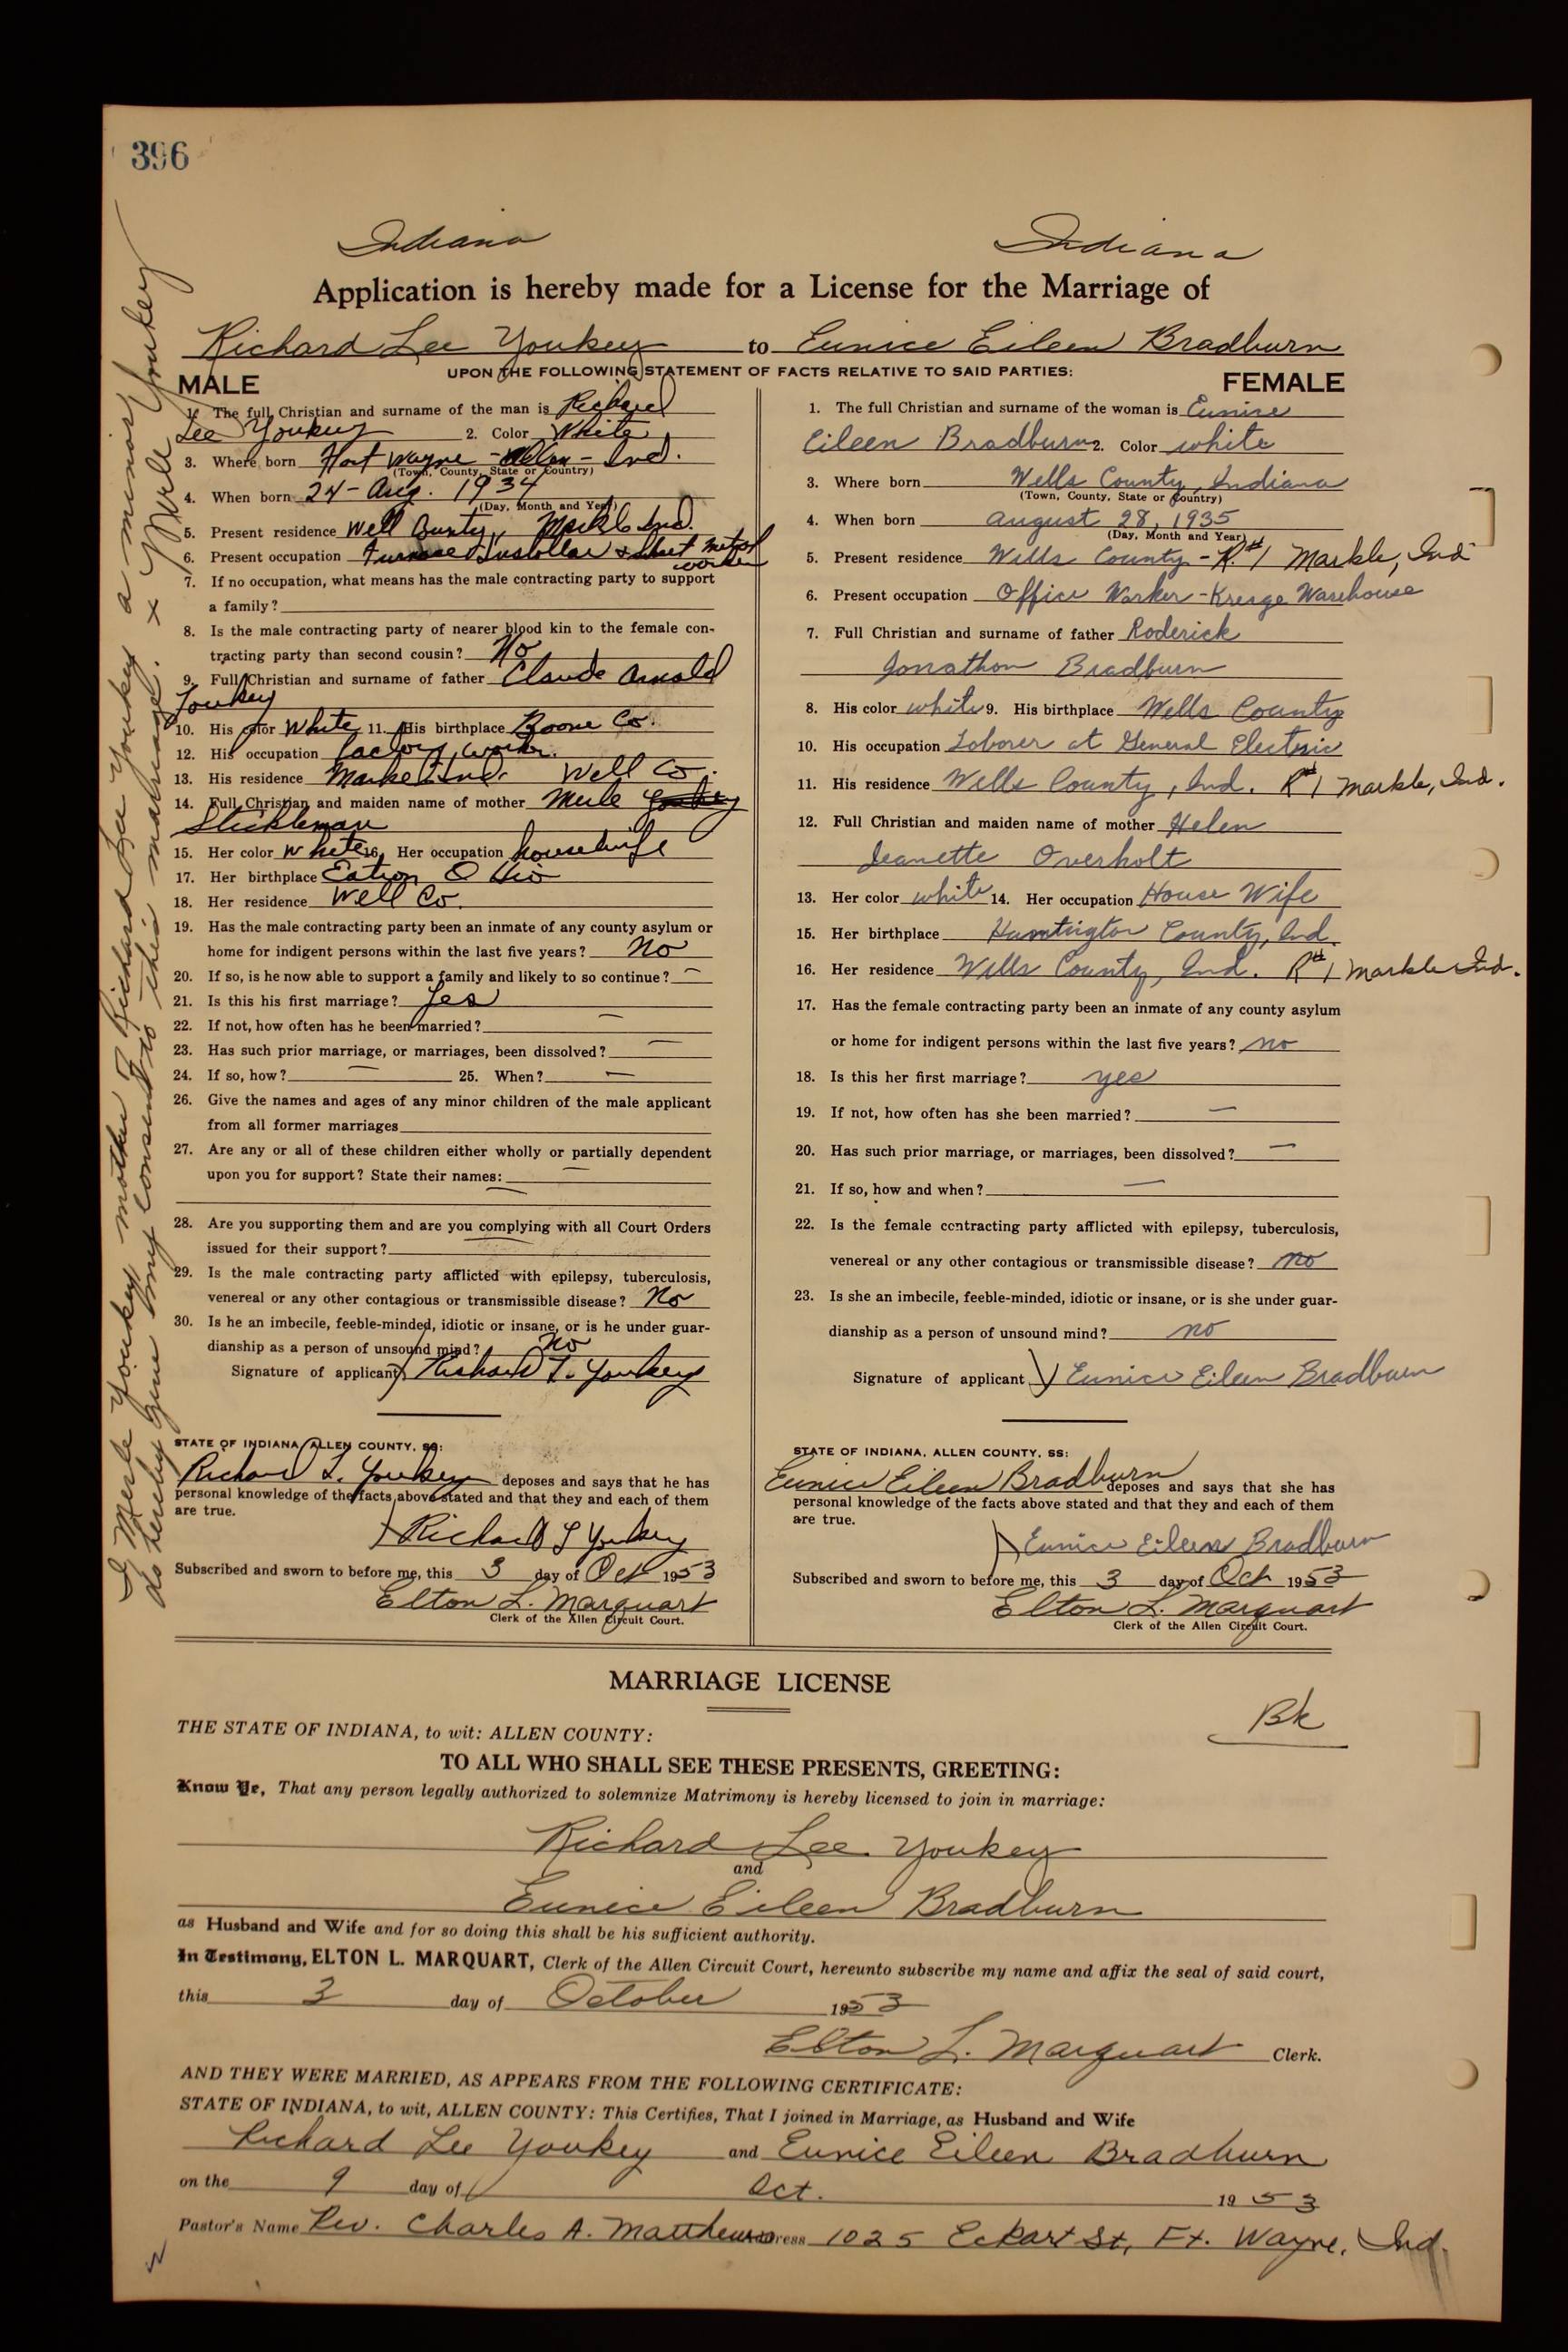 396
Indiana Indiana
Application is hereby made for a License for the Marriage of
Richard Lee Youkey to Eunice Eileen Bradburn
UPON THE FOLLOWING STATEMENT OF FACTS RELATIVE TO SAID PARTIES:
MALE
1. The full Christian and surname of the man is Richard
Lee Youkey 2. Color White
3. Where born Fort Wayne - Allen - Ind.
(Town, County, State or Country)
4. When born 24 - Aug. 1934
(Day, Month and Year)
5. Present residence Well County, Markle Ind.
6. Present occupation Furnace Installer & Sheet metal
worker
7. If no occupation, what means has the male contracting party to support
a family?
8. Is the male contracting party of nearer blood kin to the female con-
tracting party than second cousin? No
9. Full Christian and surname of father Claude Arnold
Youkey
10. His color White 11. His birthplace Boone Co.
12. His occupation factory worker.
13. His residence Markel Ind. Well Co.
14. Full Christian and maiden name of mother Merle Youkey
Stickleman
15. Her color White 16. Her occupation housewife
17. Her birthplace Eaton Ohio
18. Her residence Well Co.
19. Has the male contracting party been an inmate of any county asylum or
home for indigent persons within the last five years? No
20. If so, is he now able to support a family and likely to so continue? —
21. Is this his first marriage? Yes
22. If not, how often has he been married? —
23. Has such prior marriage, or marriages, been dissolved? —
24. If so, how? — 25. When? —
26. Give the names and ages of any minor children of the male applicant
from all former marriages
27. Are any or all of these children either wholly or partially dependent
upon you for support? State their names: —
28. Are you supporting them and are you complying with all Court Orders
issued for their support?
29. Is the male contracting party afflicted with epilepsy, tuberculosis,
venereal or any other contagious or transmissible disease? No
30. Is he an imbecile, feeble-minded, idiotic or insane, or is he under guar-
dianship as a person of unsound mind? No
Signature of applicant Richard L. Youkey
STATE OF INDIANA, ALLEN COUNTY, SS:
Richard L. Youkey deposes and says that he has
personal knowledge of the facts above stated and that they and each of them
are true.
Richard L Youkey
Subscribed and sworn to before me, this 3 day of Oct 1953
Elton L. Marquart
Clerk of the Allen Circuit Court.
FEMALE
1. The full Christian and surname of the woman is Eunice
Eileen Bradburn 2. Color white
3. Where born Wells County, Indiana
(Town, County, State or Country)
4. When born August 28, 1935
(Day, Month and Year)
5. Present residence Wells County - R.#1 Markle, Ind
6. Present occupation Office Worker - Kresge Warehouse
7. Full Christian and surname of father Roderick
Jonathon Bradburn
8. His color white 9. His birthplace Wells County
10. His occupation Laborer at General Electric
11. His residence Wells County, Ind. R#1 Markle, Ind.
12. Full Christian and maiden name of mother Helen
Jeanette Overholt
13. Her color white 14. Her occupation House Wife
15. Her birthplace Huntington County, Ind.
16. Her residence Wells County, Ind. R#1 Markle Ind.
17. Has the female contracting party been an inmate of any county asylum
or home for indigent persons within the last five years? no
18. Is this her first marriage? yes
19. If not, how often has she been married? —
20. Has such prior marriage, or marriages, been dissolved? —
21. If so, how and when? —
22. Is the female contracting party afflicted with epilepsy, tuberculosis,
venereal or any other contagious or transmissible disease? no
23. Is she an imbecile, feeble-minded, idiotic or insane, or is she under guar-
dianship as a person of unsound mind? no
Signature of applicant Eunice Eileen Bradburn
STATE OF INDIANA, ALLEN COUNTY, SS:
Eunice Eileen Bradburn deposes and says that she has
personal knowledge of the facts above stated and that they and each of them
are true.
Eunice Eileen Bradburn
Subscribed and sworn to before me, this 3 day of Oct 1953
Elton L. Marquart
Clerk of the Allen Circuit Court.
I Merle Youkey mother of Richard Lee Youkey a minor
do hereby give my consent to this marriage. x Merle Youkey
MARRIAGE LICENSE
Bk
THE STATE OF INDIANA, to wit: ALLEN COUNTY:
TO ALL WHO SHALL SEE THESE PRESENTS, GREETING:
Know Ye, That any person legally authorized to solemnize Matrimony is hereby licensed to join in marriage:
Richard Lee Youkey
and
Eunice Eileen Bradburn
as Husband and Wife and for so doing this shall be his sufficient authority.
In Testimony, ELTON L. MARQUART, Clerk of the Allen Circuit Court, hereunto subscribe my name and affix the seal of said court,
this 3 day of October 1953
Elton L. Marquart Clerk.
AND THEY WERE MARRIED, AS APPEARS FROM THE FOLLOWING CERTIFICATE:
STATE OF INDIANA, to wit, ALLEN COUNTY: This Certifies, That I joined in Marriage, as Husband and Wife
Richard Lee Youkey and Eunice Eileen Bradburn
on the 9 day of Oct. 1953
Pastor's Name Rev. Charles A. Matthews Address 1025 Eckart St, Ft. Wayne, Ind.